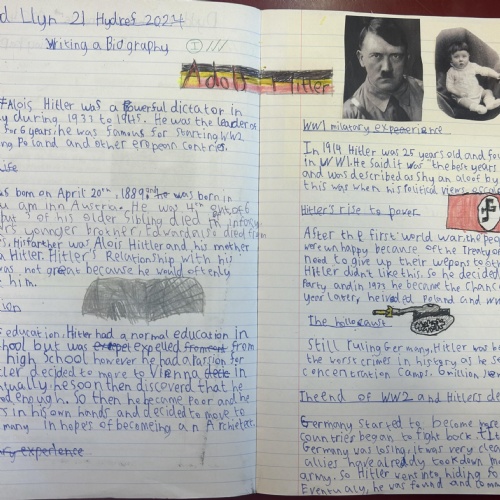 d Llyn 21 Hydref 2024
Writing a Biography
I
Adolf Hitler
Alois Hitler was a powerful dictator in
y during 1933 to 1945. He was the leader of
for 6 years, he was famous for starting WW2
ng Poland and other eropean contries.
life
as born on April 20th, 1889 and he was born in
u am inn Austria. He was 4th out of 6
but 3 of his older sibling died in infancy
rs younger brother, Edward also died from
s, His farther was Alois Hiitler and his mother
a Hitler. Hitler's Relationship with his
was not great because he would oftenly
t him.
ion
education. Hitler had a normal education in
school but was expelled from
high School however he had a Passion for
tler decided to move to Vienna in
ntually, he soon then discoverd that he
od enough. So then he became poor and he
rs in his own hands and decided to move to
many in hopes of becomeing an Architect.
experience
WW1 milatary experience
In 1914 Hitler was 25 years old and fou
in WW1. He said it was the best years
and was described as shy an aloof by
this was when his political views
Hitler's rise to power
After the first world war, the peop
were un happy because of the Treaty of
need to give up their wepons to oth
Hitler didn't like this. So he decided
Party and in 1933 he became the chanc
year later, he invaded Poland and WW
The holocaust
Still ruling Germany, Hitler was be
the worst crimes in history as he se
concentration Camps. 6 million
The end of WW2 and Hitlers de
Germany started to become
countries began to fight back. The
Germany was losing, it was very clea
allies have already took down
army. So Hitler went into hiding to
Eventually, he was found and comm